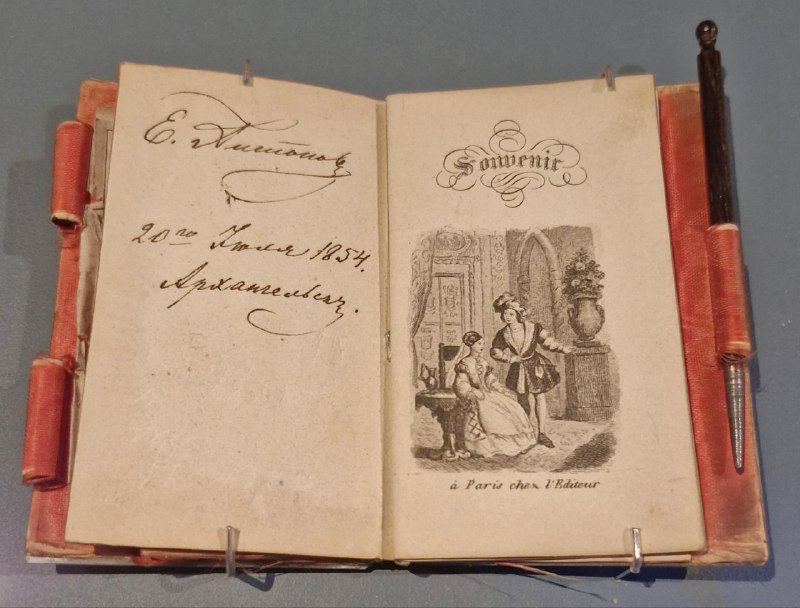 Е. Антоновъ
20го Іюля 1854.
Архангельскъ.
Souvenir
à Paris chez l'Editeur